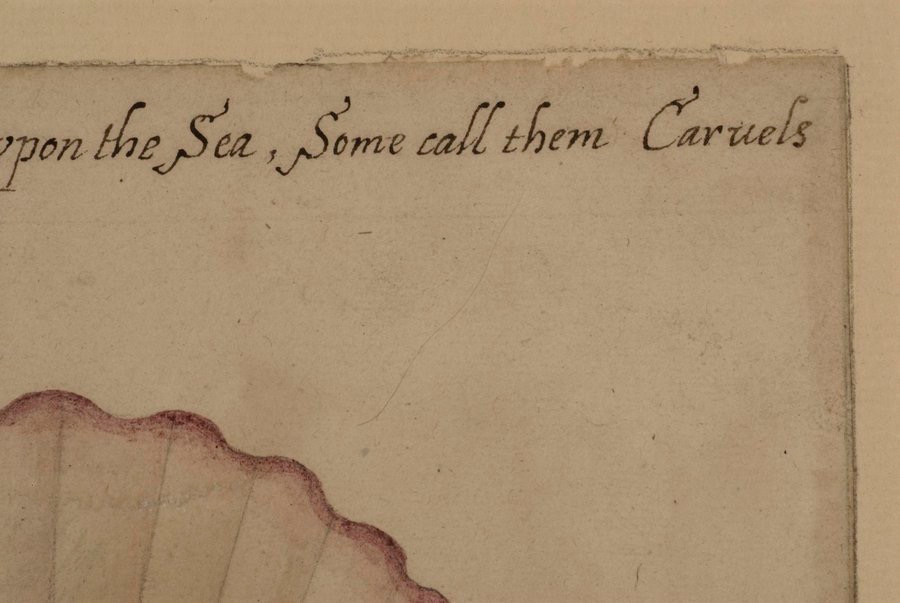 vpon the Sea, Some call them Caruels